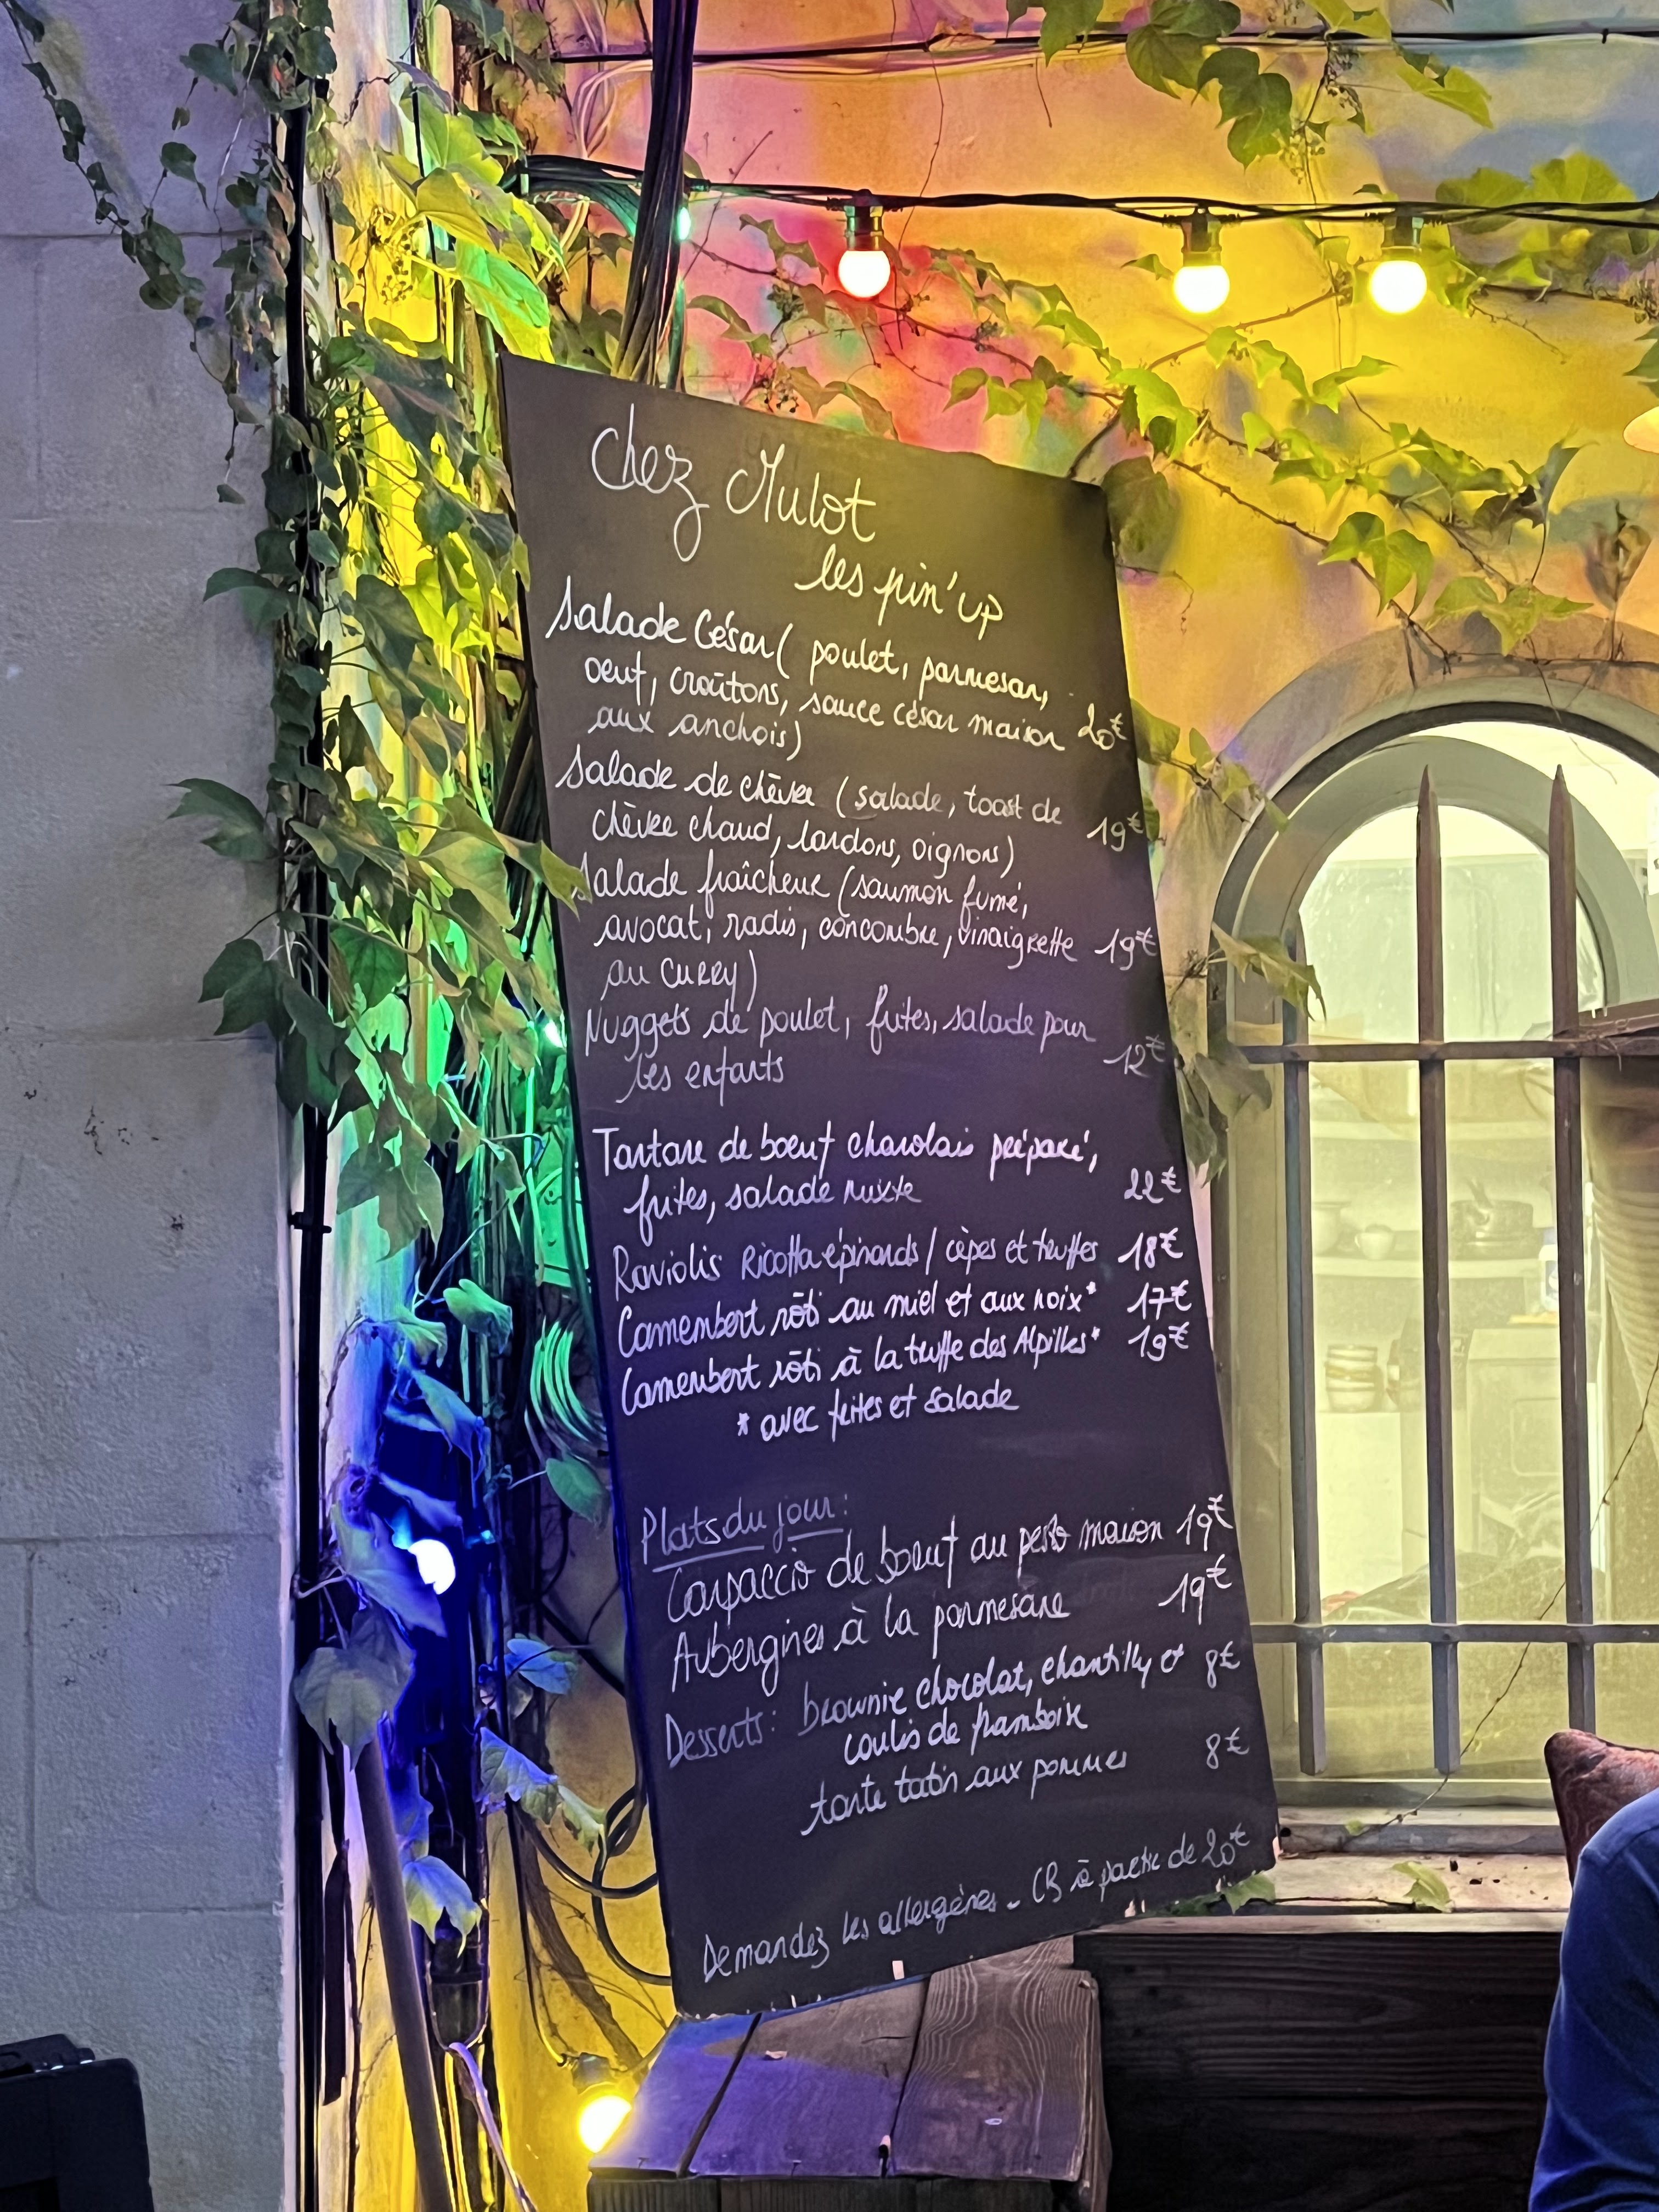 Chez Mulot
les pin'up
Salade César ( poulet, parmesan,
oeuf, croûtons, sauce césar maison 20€
aux anchois)
Salade de chèvre (salade, toast de
chèvre chaud, lardons, oignons) 19€
Salade fraîcheur (saumon fumé,
avocat, radis, concombre, vinaigrette 19€
au curry)
Nuggets de poulet, frites, salade pour
les enfants 12€
Tartare de boeuf charolais préparé,
frites, salade mixte 22€
Raviolis Ricotta épinards / cèpes et truffes 18€
Camembert rôti au miel et aux noix* 17€
Camembert rôti à la truffe des Alpilles* 19€
* avec frites et salade
Plats du jour :
Carpaccio de boeuf au pesto maison 19€
Aubergines à la parmesane 19€
Desserts : brownie chocolat, chantilly et 8€
coulis de framboise
tarte tatin aux pommes 8€
Demandez les allergènes - CB à partir de 20€